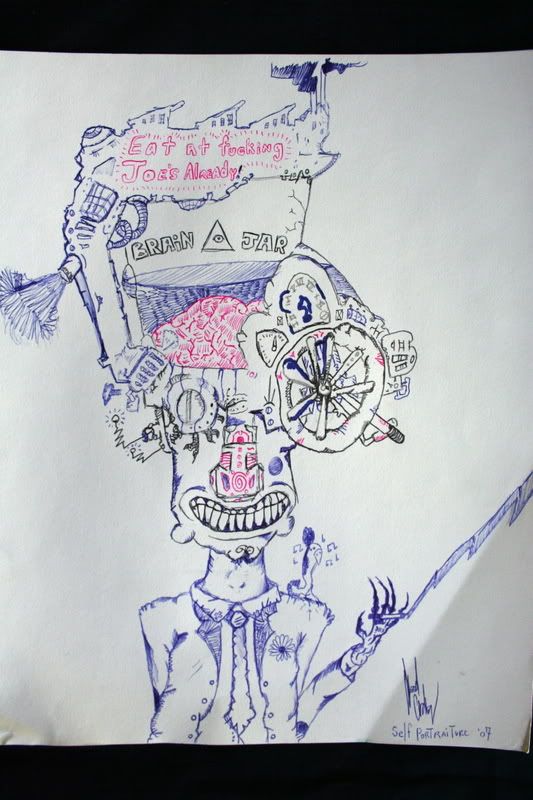 Eat at fucking
Joe's Already!
BRAIN JAR
Self PORTRAITURE '07